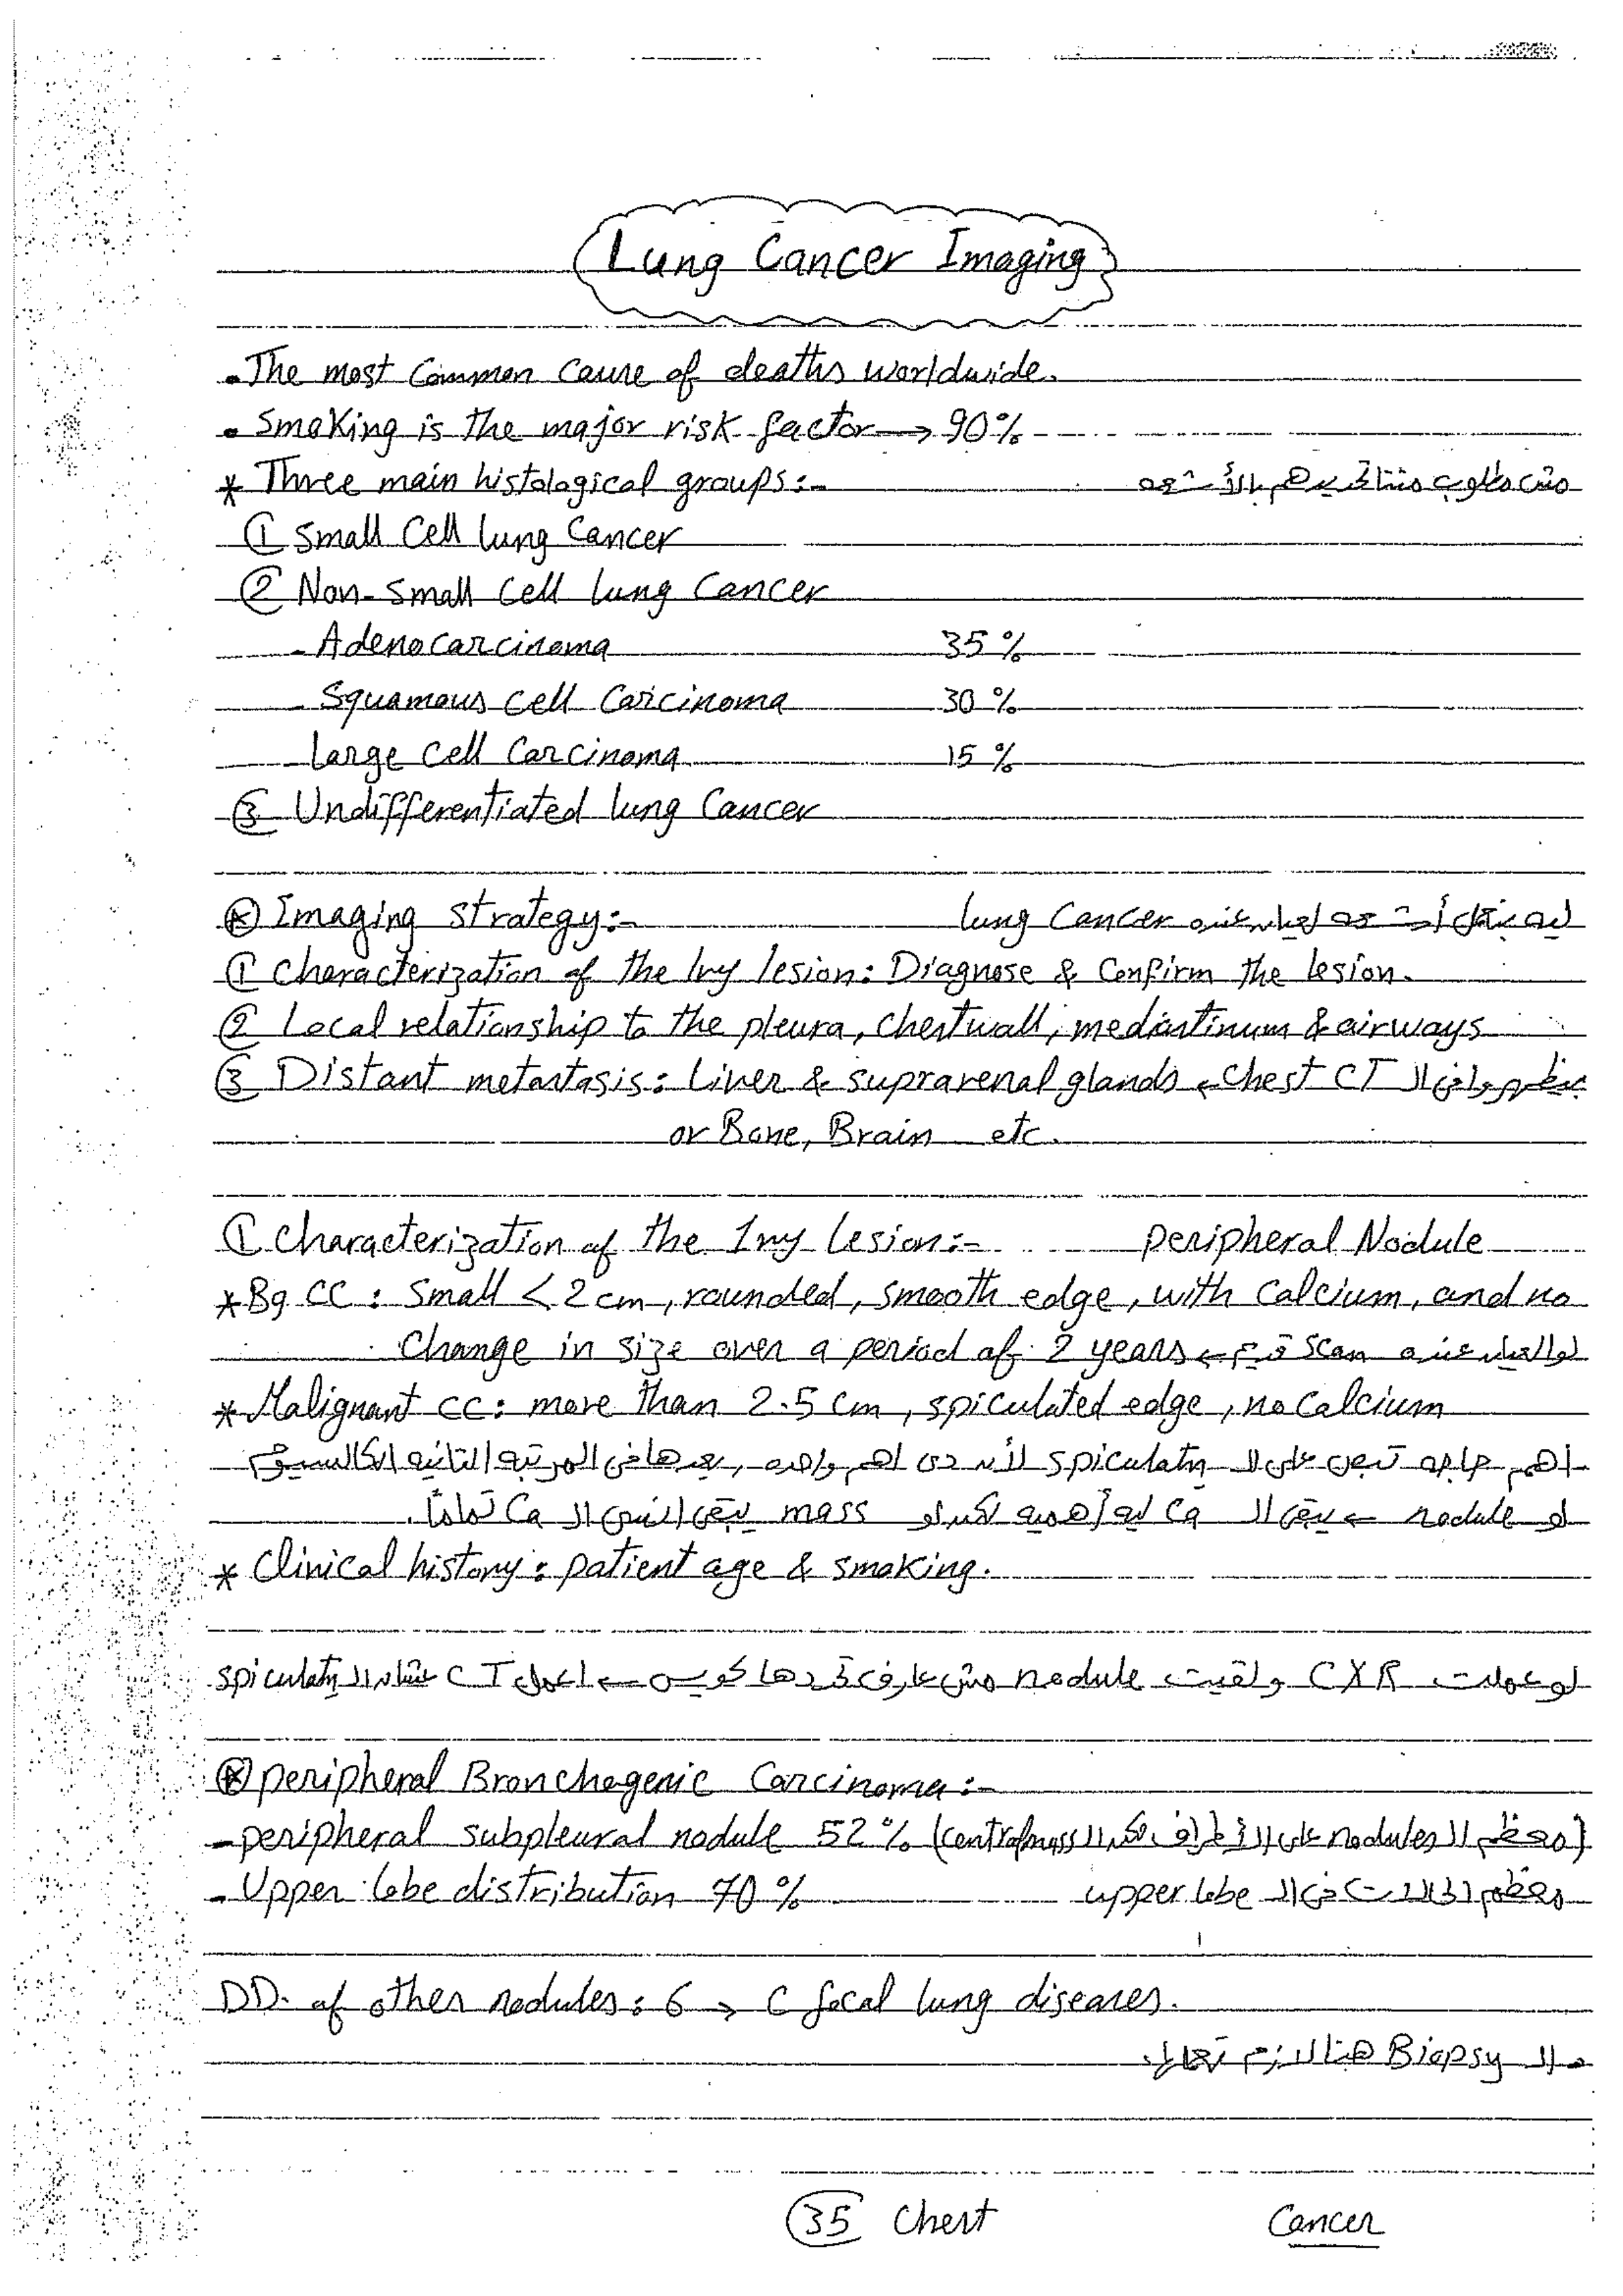 Lung Cancer Imaging
. The most common cause of deaths worldwide.
. Smoking is the major risk factor → 90%
* Three main histological groups :- مش مطلوب مننا نحددهم بالأشعه
① Small Cell lung Cancer
② Non-Small Cell lung Cancer
- Adenocarcinoma 35 %
- Squamous cell Carcinoma 30 %
- large cell Carcinoma 15 %
③ Undifferentiated lung Cancer
⊛ Imaging strategy :- ليه بنعمل أشعه لعيان عنده lung Cancer
① Characterization of the 1ry lesion : Diagnose & Confirm the lesion.
② Local relationship to the pleura, chestwall, mediastinum & airways
③ Distant metastasis : Liver & suprarenal glands ← Chest CT بيظهروا في ال
or Bone, Brain etc.
① Characterization of the 1ry Lesion :- peripheral Nodule
* Bg CC : Small < 2 cm, rounded, smooth edge, with Calcium, and no
Change in size over a period of 2 years ← لو العيان عنده scan قديم
* Malignant CC : more than 2.5 cm, spiculated edge, no Calcium
اهم حاجه تبص على ال spiculatn لأن دى اهم واحده, بعدها فى المرتبه التانيه الكالسيوم
لو nodule ← يبقى ال Ca ليه أهميه لكن لو mass يبقى انسى ال Ca تماماً.
* Clinical history : patient age & smoking.
لو عملت CXR ولقيت nodule مش عارف تحددها كويس ← اعمل CT عشان ال spiculatn
⊛ peripheral Bronchogenic Carcinoma :-
- peripheral subpleural nodule 52 % (معظم ال nodules على الأطراف عكس ال central mass)
- Upper lobe distribution 70 % معظم الحالات في ال upper lobe
DD. of other nodules : 6 → C focal lung diseases.
ال Biopsy هنا لازم تتعمل.
35 Chest Cancer